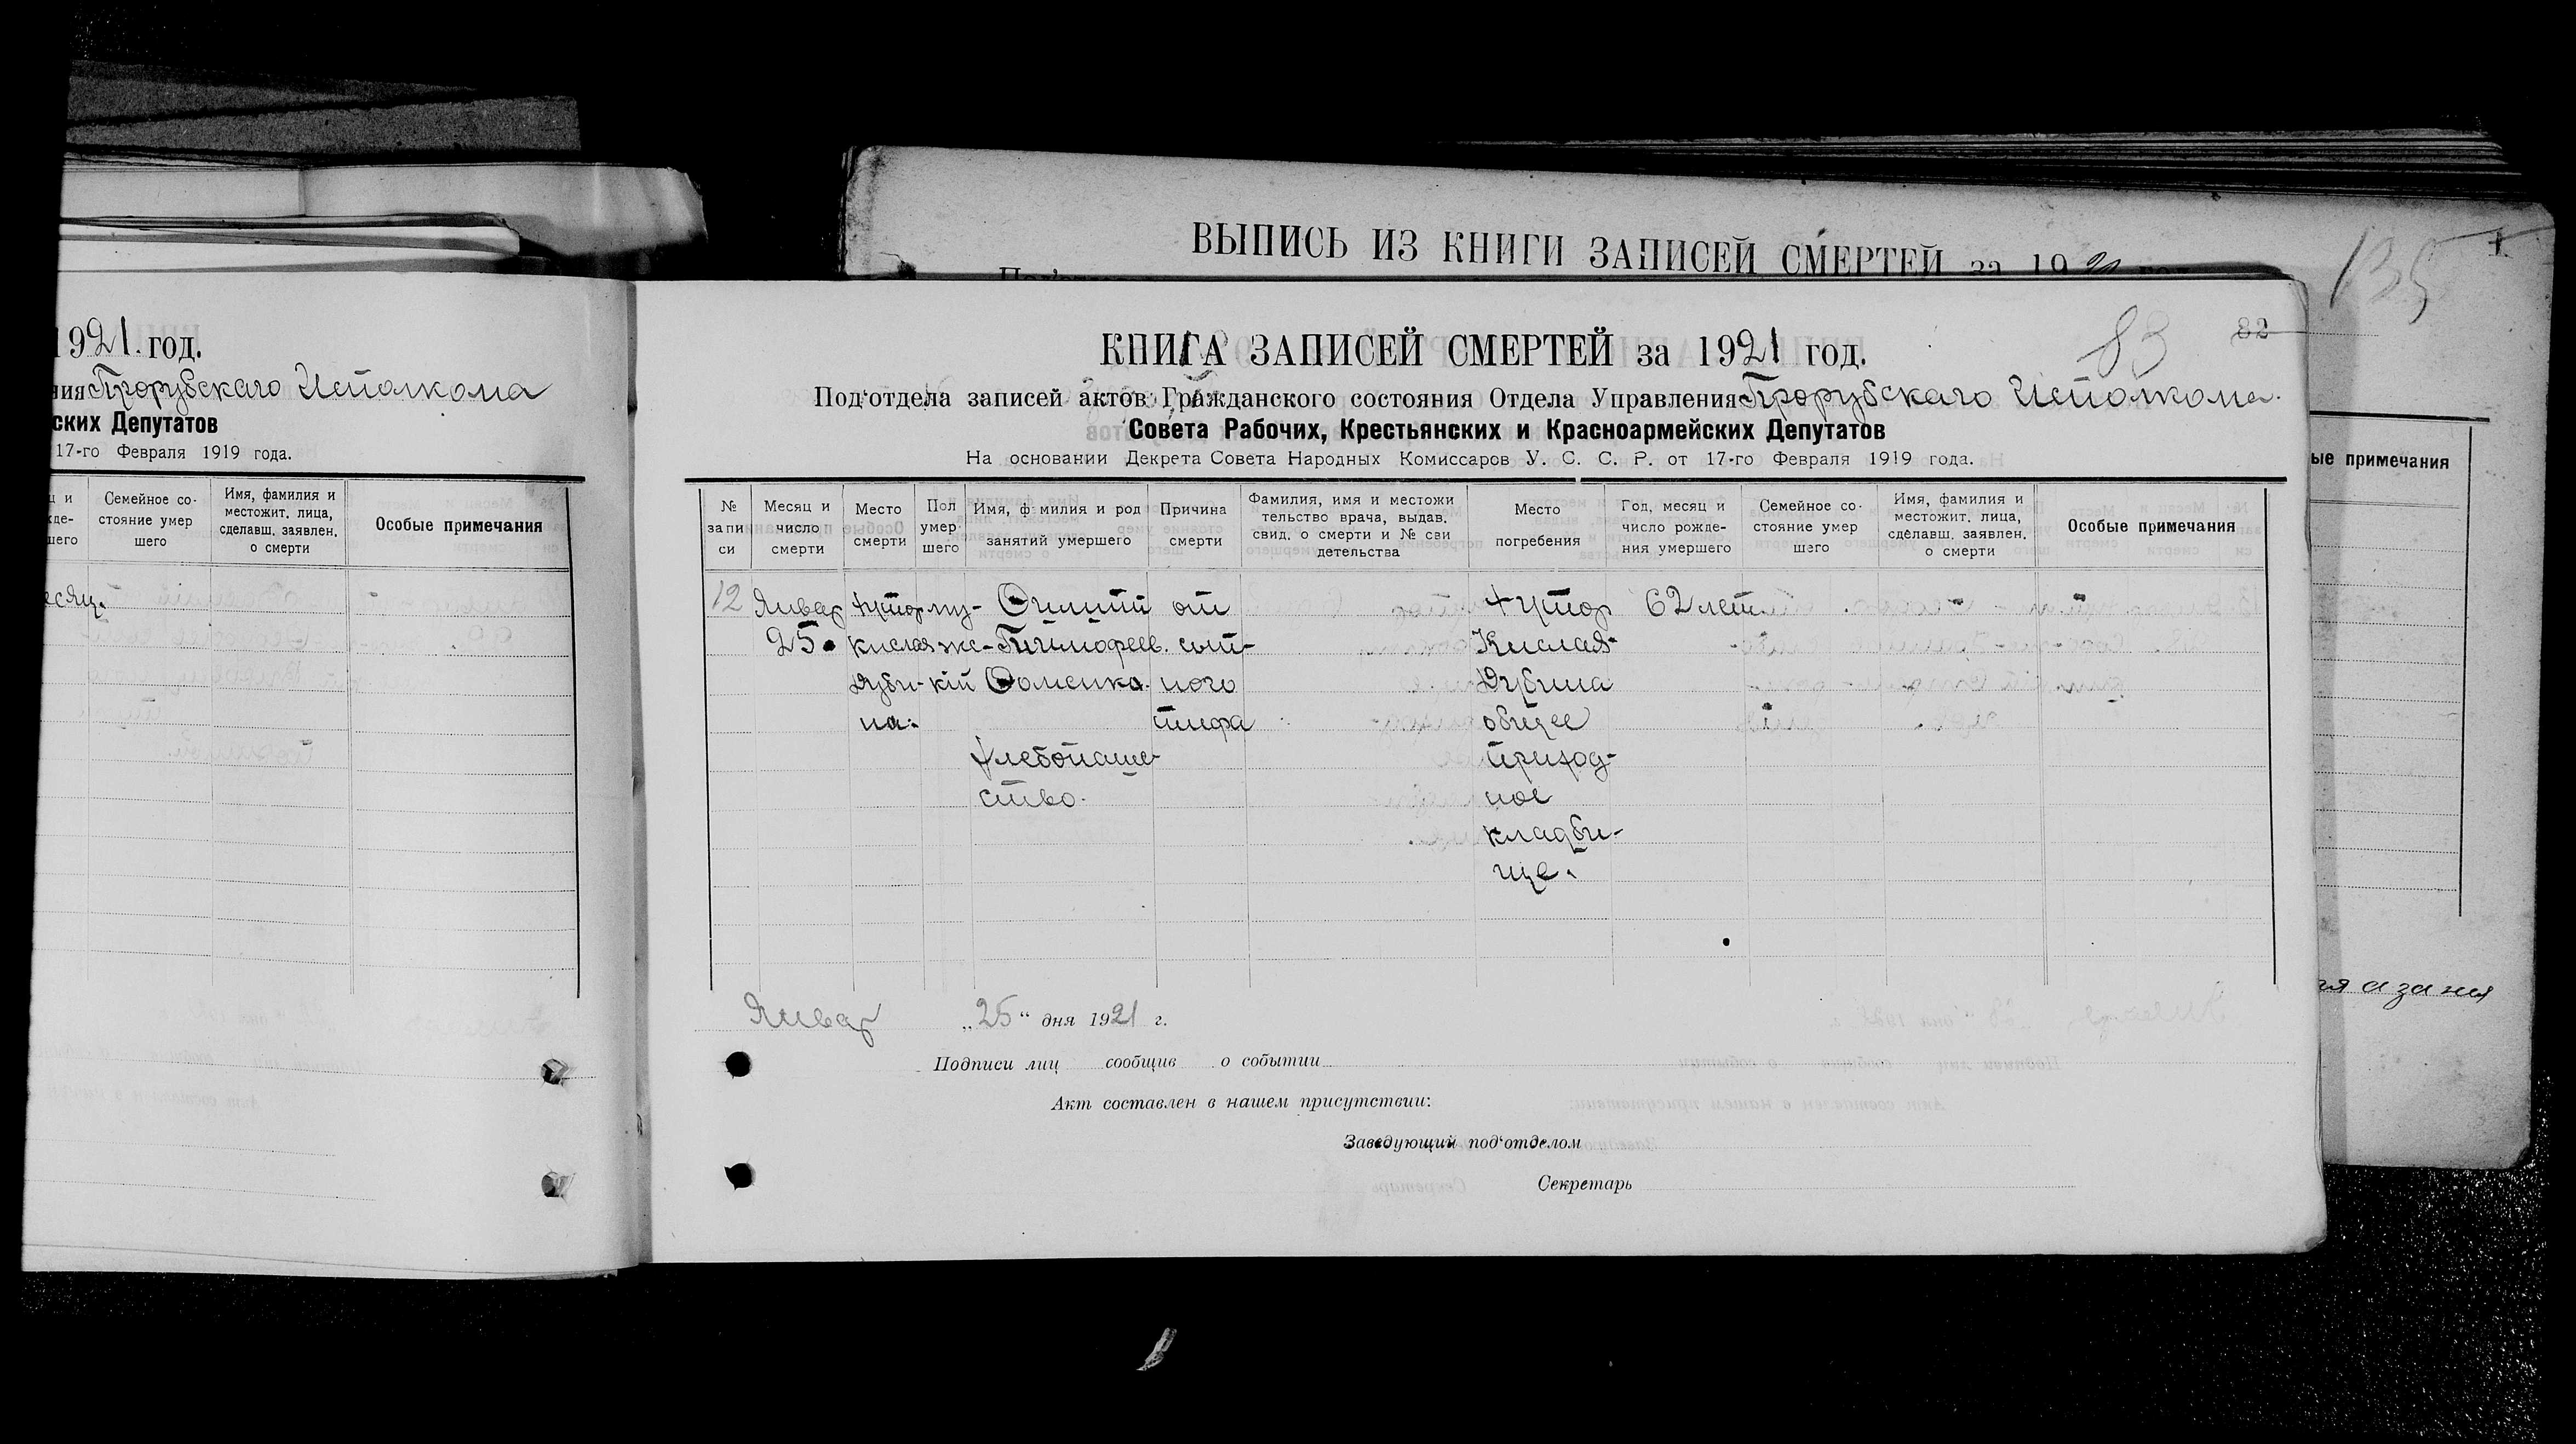 ВЫПИСЬ ИЗ КНИГИ ЗАПИСЕЙ СМЕРТЕЙ за 1921 год
135
1921. год.
ния Прорубскаго Исполкома
ских Депутатов
17-го Февраля 1919 года.
Семейное со-
стояние умер
шего
Имя, фамилия и
местожит. лица,
сделавш. заявлен.
о смерти
Особые примечания
есяц.
КНИГА ЗАПИСЕЙ СМЕРТЕЙ за 1921 год.
83
82
Под'отдела записей актов Гражданского состояния Отдела Управления Прорубскаго Исполкома.
Совета Рабочих, Крестьянских и Красноармейских Депутатов
На основании Декрета Совета Народных Комиссаров У. С. С. Р. от 17-го Февраля 1919 года.
№
запи
си
Месяц и
число
смерти
Место
смерти
Пол
умер-
шего
Имя, фамилия и род
занятий умершего
Причина
смерти
Фамилия, имя и местожи
тельство врача, выдав.
свид. о смерти и № сви
детельства
Место
погребения
Год, месяц и
число рожде-
ния умершего
Семейное со-
стояние умер
шего
Имя, фамилия и
местожит. лица,
сделавш. заявлен.
о смерти
Особые примечания
12
Январ
25.
хутор
Кислая
Дуби-
на.
му-
жс-
кій
Филипп
Тимофеев.
Фоменко.
Хлебопаше-
ство.
от
сып-
ного
тифа
Хутор
Кислая-
Дубина
общее
приход-
ное
кладби-
ще.
62 лет.
Январ „25“ дня 1921 г.
Подписи лиц сообщив о событии
Акт составлен в нашем присутствии:
Заведующий под'отделом
Секретарь
ые примечания